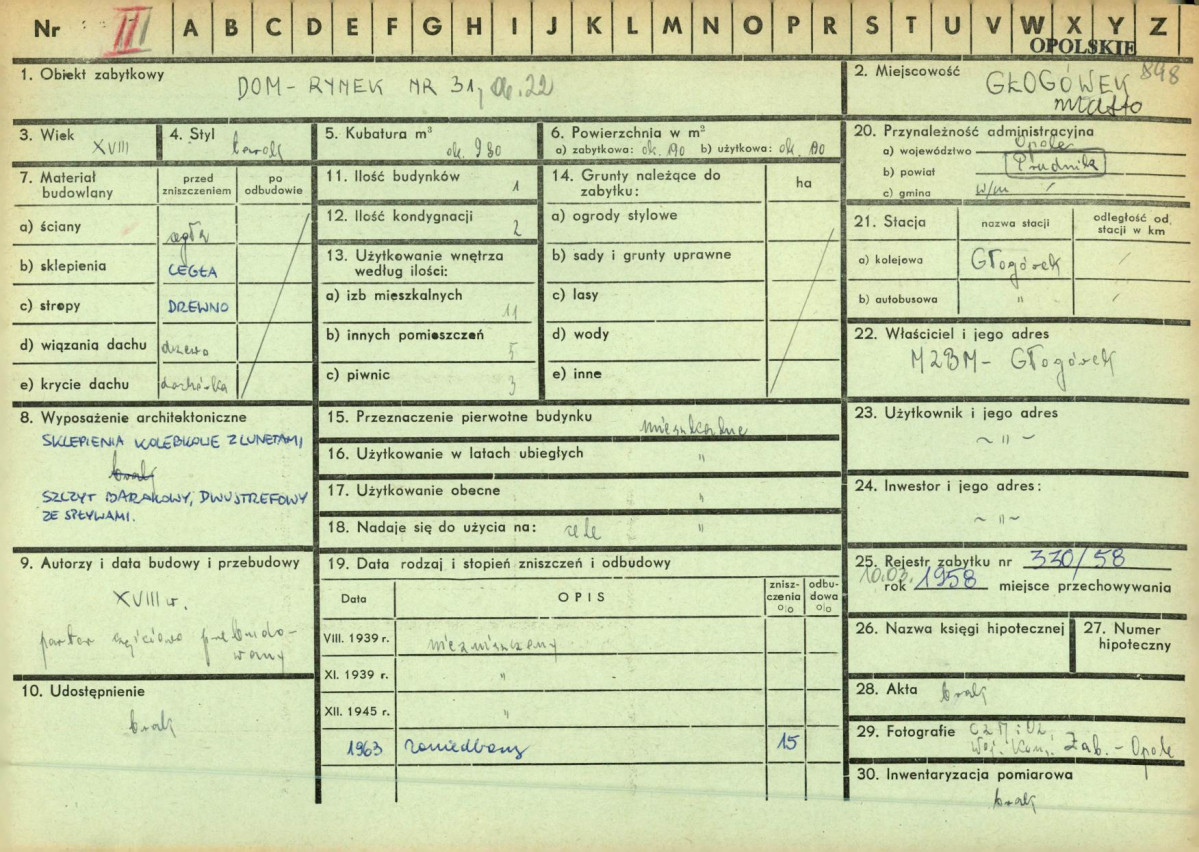 Nr III A B C D E F G H I J K L M N O P R S T U V W X Y Z
OPOLSKIE
848
1. Obiekt zabytkowy
DOM - RYNEK NR 31, ob. 22
2. Miejscowość
GŁOGÓWEK
miasto
3. Wiek XVIII
4. Styl barok
5. Kubatura m³
ok. 980
6. Powierzchnia w m²
a) zabytkowa: ok. 190 b) użytkowa: ok. 190
7. Materiał budowlany
przed zniszczeniem
po odbudowie
a) ściany cegła
b) sklepienia CEGŁA
c) stropy DREWNO
d) wiązania dachu drzewo
e) krycie dachu dachówka
8. Wyposażenie architektoniczne
SKLEPIENIA KOLEBKOWE Z LUNETAMI,
brak
SZCZYT BAROKOWY, DWUSTREFOWY
ZE SPŁYWAMI.
9. Autorzy i data budowy i przebudowy
XVIII w.
parter częściowo przebudo-
wany
10. Udostępnienie
brak
11. Ilość budynków 1
12. Ilość kondygnacji 2
13. Użytkowanie wnętrza
według ilości:
a) izb mieszkalnych 11
b) innych pomieszczeń 5
c) piwnic 3
14. Grunty należące do
zabytku:
ha
a) ogrody stylowe
b) sady i grunty uprawne
c) lasy
d) wody
e) inne
15. Przeznaczenie pierwotne budynku mieszkalne
16. Użytkowanie w latach ubiegłych "
17. Użytkowanie obecne "
18. Nadaje się do użycia na: cele "
19. Data rodzaj i stopień zniszczeń i odbudowy
Data
OPIS
znisz-
czenia
o|o
odbu-
dowa
o|o
VIII. 1939 r. niezniszczony
XI. 1939 r. "
XII. 1945 r. "
1963 zaniedbany 15
20. Przynależność administracyjna
a) województwo Opole
b) powiat Prudnik
c) gmina w/m
21. Stacja
nazwa stacji
odległość od
stacji w km
a) kolejowa Głogówek
b) autobusowa "
22. Właściciel i jego adres
MZBM - Głogówek
23. Użytkownik i jego adres
~ " ~
24. Inwestor i jego adres:
~ " ~
25. Rejestr zabytku nr 330/58
10.03.
rok 1958 miejsce przechowywania
26. Nazwa księgi hipotecznej
27. Numer
hipoteczny
28. Akta brak
29. Fotografie
Woj. Kons. Zab. - Opole
30. Inwentaryzacja pomiarowa
brak